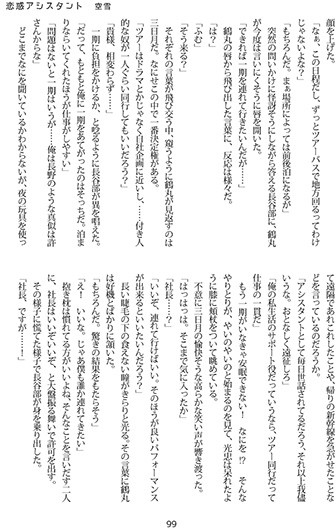 恋惑アシスタント　空雪
顔を上げた。
「なぁ、この日程だし、ずっとツアーバスで地方回るってわけじゃないよな？」
「もちろんだ。まぁ場所によっては前後泊になるが」
突然の問いかけに怪訝そうにしながら答える長谷部に、鶴丸が今度は言いにくそうに唇を開いた。
「できれば一期を連れて行きたいんだが……」
鶴丸の唇から飛び出した言葉に、反応は様々だ。
「ふむ」
「は？」
「そう来る？」
それぞれの言葉が飛び交う中、窺うように鶴丸が見返すのは三日月だ。なにせこの中で一番決定権がある。
「ツアーはドラマとかじゃなく自社企画に近いし、……付き人的な奴が一人ぐらい同行してもいいだろう？」
「貴様、相変わらず……」
「一期に負担をかけるか、と唸るように長谷部が異を唱えた。
「だって、もともと俺に一期をあてがったのはそっちだ。泊まりならいてくれたほうが仕事がしやすい」
「問題はないと一期はいうが……俺は長野のような真似は許さんからな」
どこまでなにを聞いているかわからないが、夜の玩具を使って遠隔であれこれしたことや、帰りの新幹線を気がせたことなどを言っているのだろうか。
「アシスタントとして毎日世話されてるだろう。それ以上我儘いうな。おとなしく遠征しろ」
「俺の私生活のサポート役だっていうなら、ツアー同行だって仕事の一貫だ」
もう一期がいなきゃ安眠できない！　なにを⁉　そんなやりとりが、やいのやいのと始まるのを見て、光忠は呆れたように膝に頬杖をついて眺めている。
不意に三日月の愉快そうな高らかな笑い声が響き渡った。
「はっはっは。そこまで気に入ったか」
「社長……？」
「いいぞ、連れて行けばいい。そのほうが良いパフォーマンスが出来るといいたいんだろう？」
長い睫毛の下の食えない瞳がきらりと光る。その言葉に鶴丸は好機とばかりに頷いた。
「もちろんだ。驚きの結果をもたらそう」
「え！　いいな。じゃあ僕も誰か連れてきたい」
抱き枕は慣れてる方がいいよね。そんなことを言いだす二人に、社長はいいぞいいぞ、と大盤振る舞いで許可を出す。
その様子に慌てた様子で長谷部が身を乗り出した。
「社長、ですが……！」
99